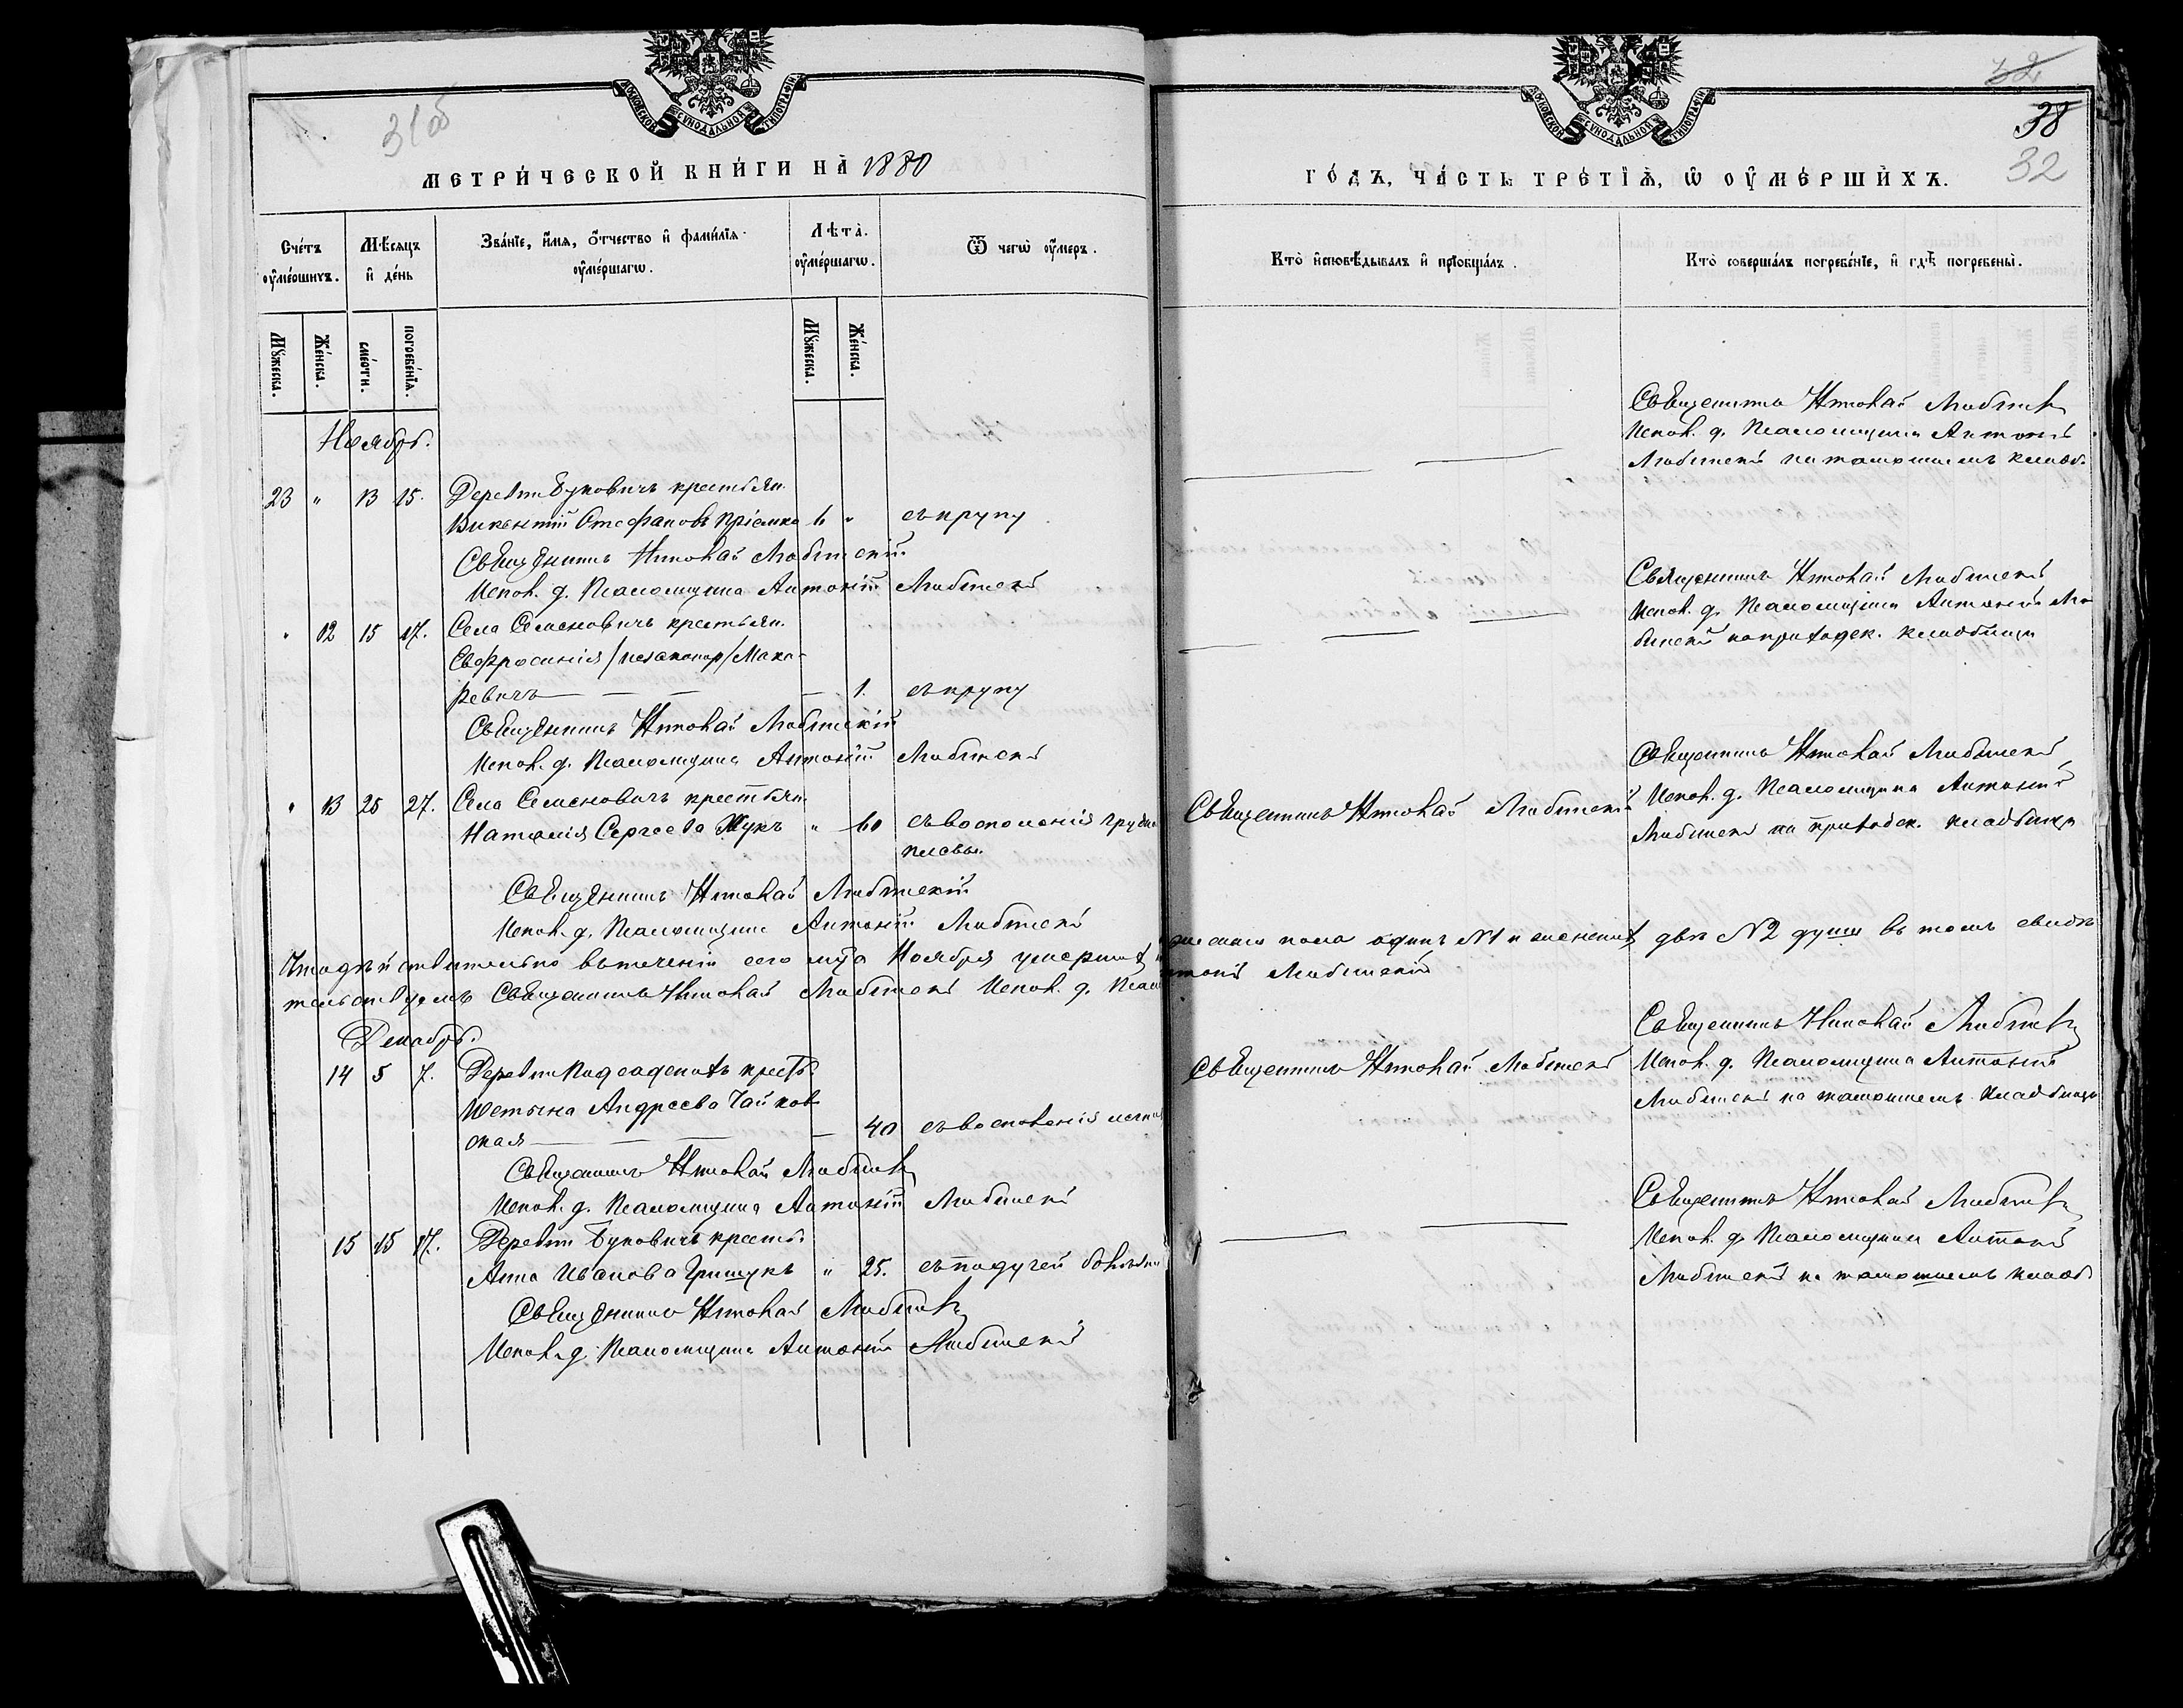 31об
МОСКОВСКОЙ СѴНОДАЛЬНОЙ ТИПОГРАФІИ
МЕТРИ́ЧЕСКОЙ КНИ́ГИ НА̀ 1880
Сче́тъ оу҆ме́ршихъ.
Мѣ́сяцъ и҆ де́нь
Зва́нїе, и҆́мя, о҆́тчество и҆ фами́лїя оу҆ме́ршагѡ.
Лѣта̀ оу҆ме́ршагѡ.
Ѿ чегѡ̀ оу҆́меръ.
Мꙋ́жеска.
Же́нска.
сме́рти.
погребе́нїѧ.
Мꙋ́жеска.
Же́нска.
Ноябрь.
23 " 13 15. Деревни Буковичъ крестьян.
Викентій Стефановъ Пріемко 6 " съ крупу
Священникъ Николай Любинскій
Испол. д. Псаломщика Антоній Любинскій
" 12 15 17. Села Семеновичъ крестьян.
Евфросинія /незаконор/ Мака-
ревичъ — — — — 1. съ крупу
Священникъ Николай Любинскій
Испол. д. Псаломщика Антоній Любинскій
" 13 25 27. Села Семеновичъ крестьян.
Наталія Сергеева Жукъ " 60 съ воспаленія грудной
плевы.
Священникъ Николай Любинскій
Испол. д. Псаломщика Антоній Любинскій
Что дѣйствительно въ теченіи сего м-ца Ноября умершихъ
тельствуемъ Священникъ Николай Любинскій Испол. д. Псал
Декабрь.
14 5 7. Деревни крест.
Андреева Чайков
ская — — — — 40 съ воспаленія легкихъ
Священникъ Николай Любинскій
Испол. д. Псаломщика Антоній Любинскій
15 15 17. Деревни Буковичъ крест.
Анна Иванова Грищукъ " 25. съ падучей болѣзни
Священникъ Николай Любинскій
Испол. д. Псаломщика Антоній Любинскій
32
38
32
МОСКОВСКОЙ СѴНОДАЛЬНОЙ ТИПОГРАФІИ
ГО́ДЪ, ЧА́СТЬ ТРЕ́ТЇѦ, Ѡ҆ ОУ҆МЕ́РШИХЪ.
Кто̀ и҆сповѣ́дывалъ и҆ прїѡбща́лъ.
Кто̀ соверша́лъ погребе́нїе, и҆ гдѣ̀ погребены̀.
Священникъ Николай Любинскій
Испол. д. Псаломщика Антоній
Любинскій на тамошнемъ кладб.
Священникъ Николай Любинскій
Испол. д. Псаломщика Антоній Лю
бинскій на приходск. кладбищѣ
Священникъ Николай Любинскій
Священникъ Николай Любинскій
Испол. д. Псаломщика Антоній
Любинскій на приходск. кладбищѣ
мужескаго пола одинъ №1 и женскихъ двѣ №2 души въ томъ свидѣ
Антоній Любинскій
Священникъ Николай Любинскій
Священникъ Николай Любинскій
Испол. д. Псаломщика Антоній
Любинскій на тамошнемъ кладбищѣ
Священникъ Николай Любинскій
Испол. д. Псаломщика Антоній
Любинскій на тамошнемъ кладб.